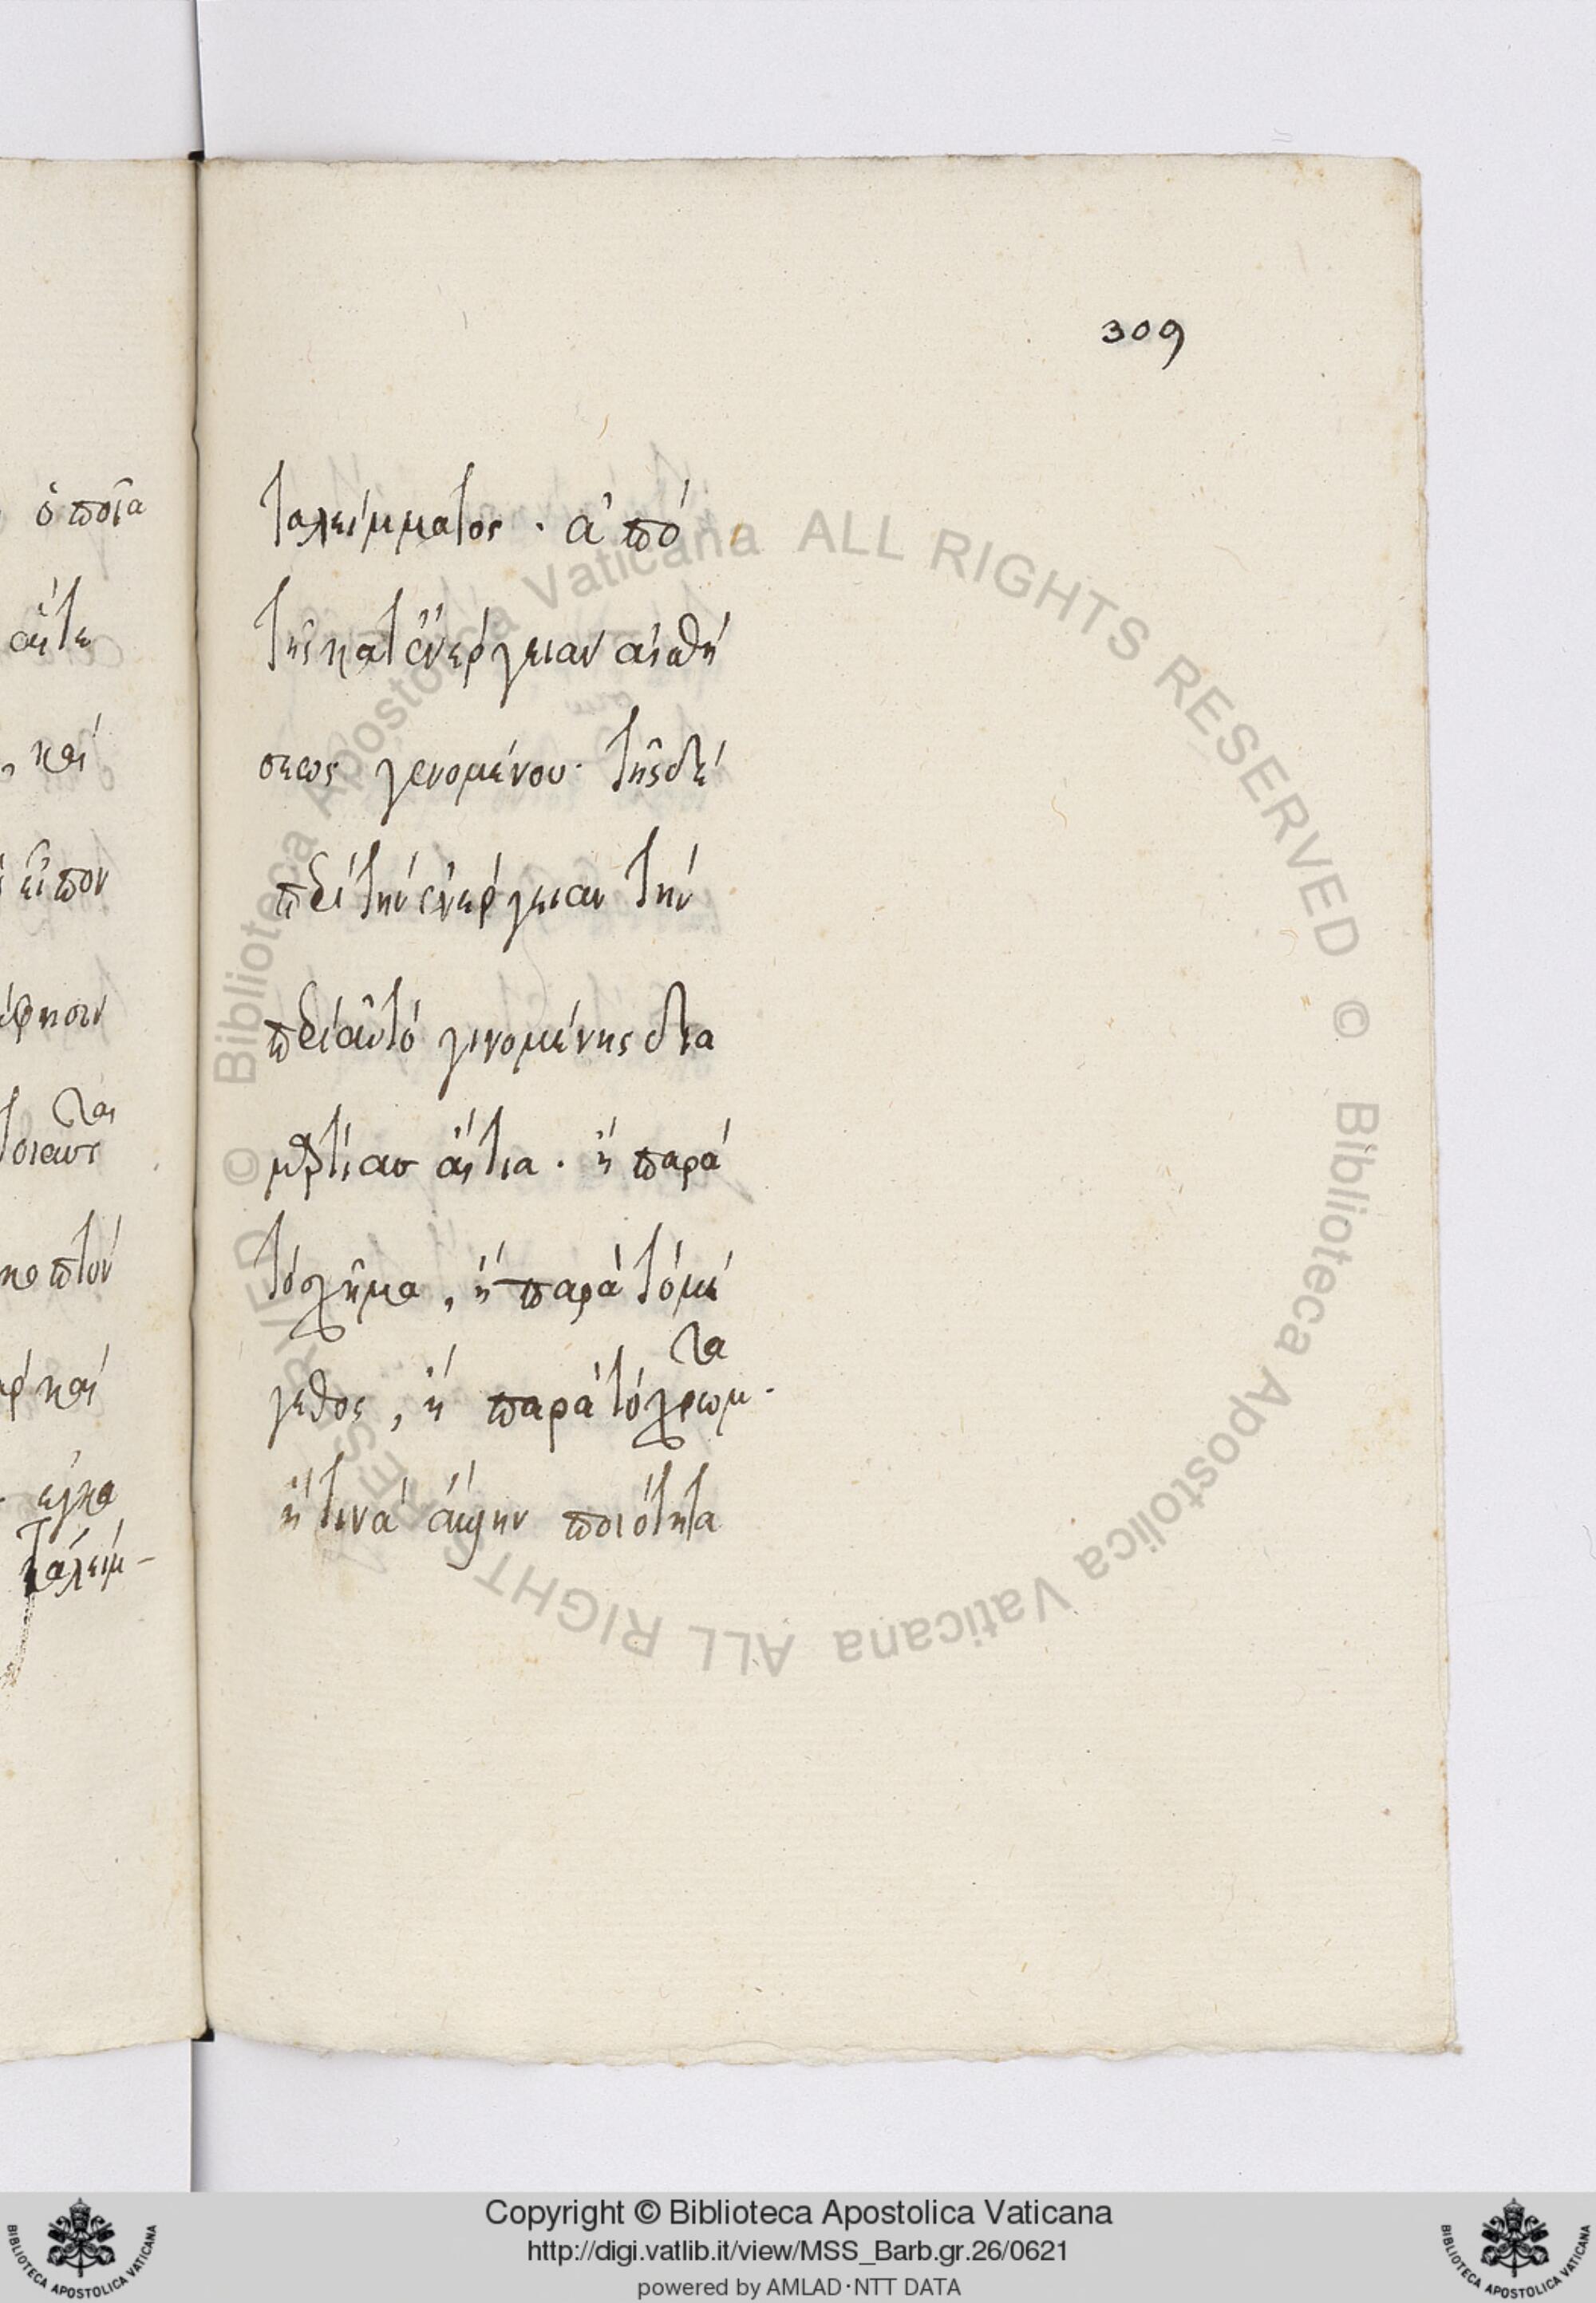 309
ὁποῖα
αἵτε
, καὶ
εἶπον
ταλείμματος · ἀπὸ
τῆς κατ ἐνέργειαν αἰσθή
σεως γενομένου · τῆς δὲ
περὶ τὴν ἐνέργειαν τὴν
περὶ αὐτὸ γινομένης δια
μαρτίασ αἴτια · ἢ παρὰ
τὸ σχῆμα , ἢ παρὰ τὸ μέ
γεθος , ἢ παρὰ τὸ χρωμ · τα
ἤ τινα ἄλλην ποιότητα
© Biblioteca Apostolica Vaticana ALL RIGHTS RESERVED © Biblioteca Apostolica Vaticana ALL RIGHTS RESERVED
Copyright © Biblioteca Apostolica Vaticana
http://digi.vatlib.it/view/MSS_Barb.gr.26/0621
powered by AMLAD·NTT DATA
BIBLIOTECA APOSTOLICA VATICANA
BIBLIOTECA APOSTOLICA VATICANA